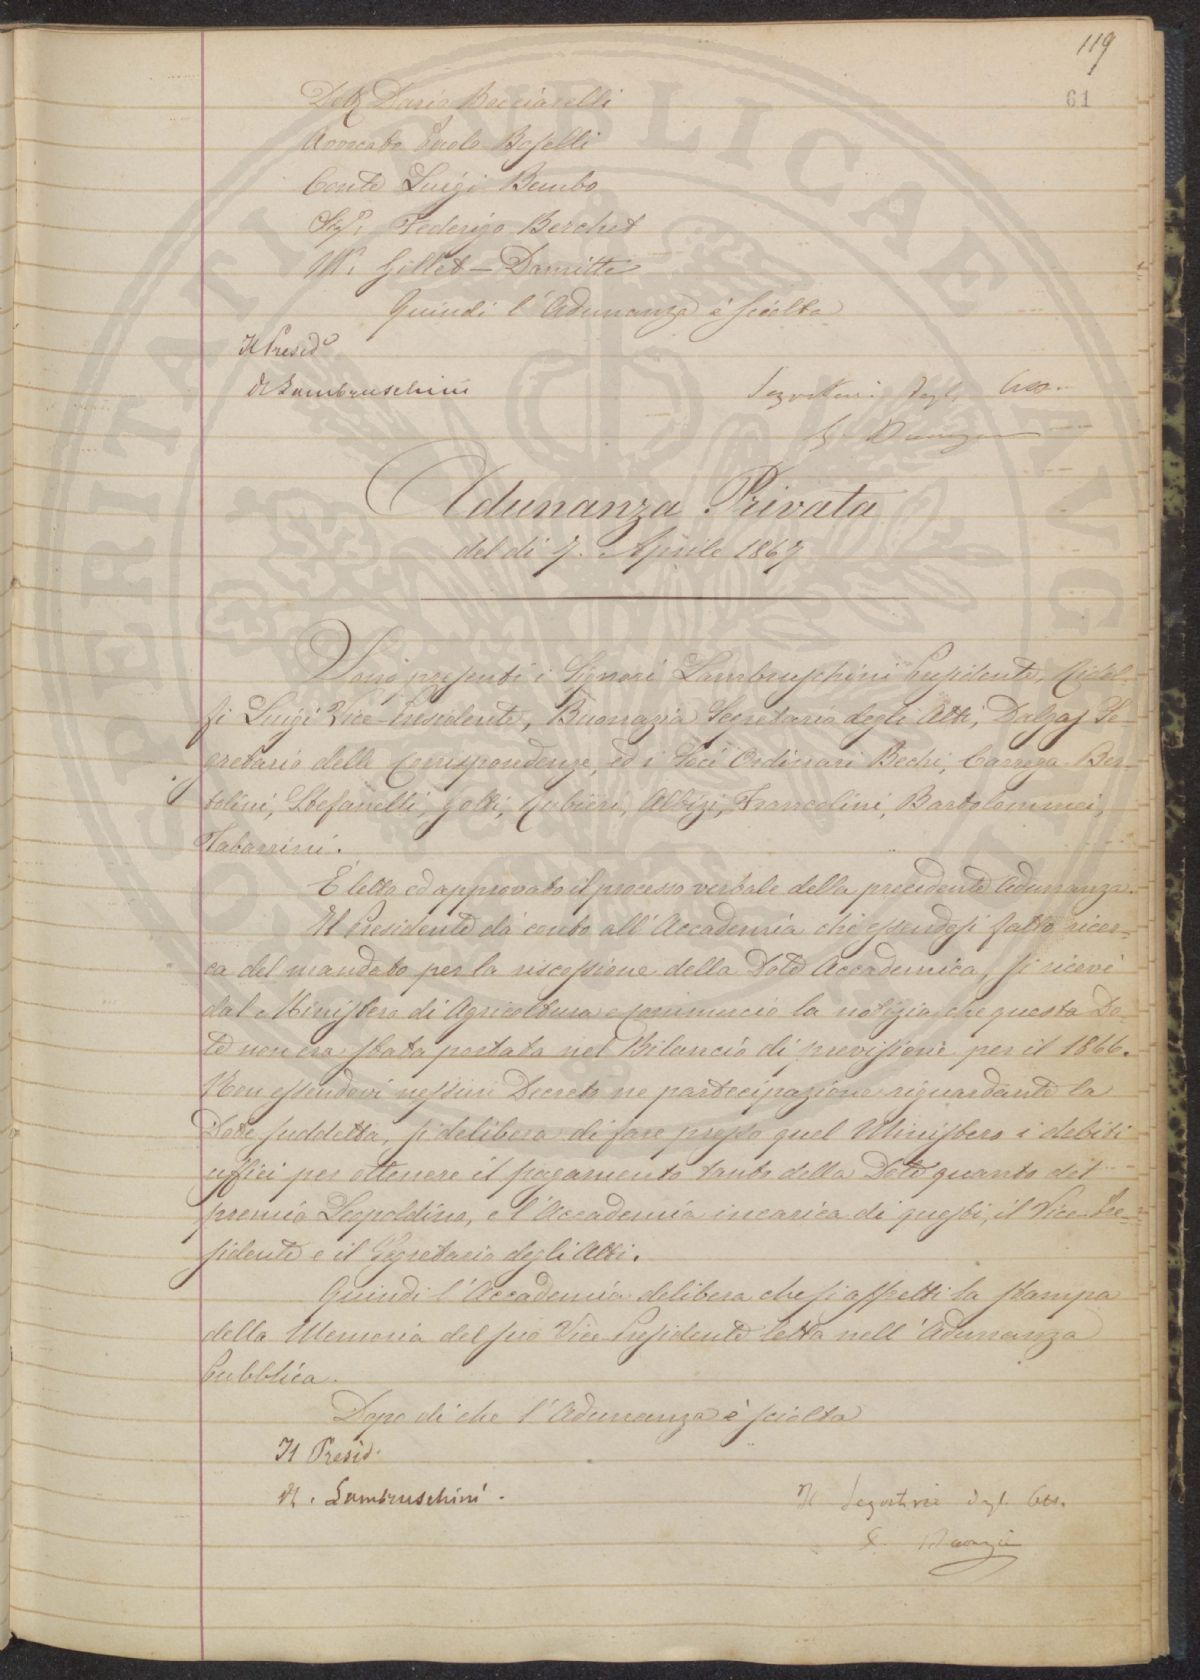 119
61
Dott. Dario Bocciarelli
Avvocato Paolo Boselli
Conte Luigi Bembo
Sigr. Federigo Berchet
Mr. Gillet – Damitte
Quindi l'Adunanza è sciolta
Il Presid.e
R Lambruschini
Segretario degli Atti
Adunanza Privata
del di 7. Aprile 1867
Sono presenti i Signori Lambruschini Presidente, Ridol-
fi Luigi Vice-Presidente, Buonazia Segretario degli Atti, Dalgas Se-
gretario delle Corrispondenze, ed i Soci Ordinari Bechi, Carrega Ber-
tolini, Stefanelli, Gotti, Rubieri, Albizi, Francolini, Bartolommei,
Tabarrini.
È letto ed approvato il processo verbale della precedente Adunanza.
Il Presidente dà conto all'Accademia che essendosi fatto ricer-
ca del mandato per la riscossione della Dote Accademica, si ricevè
dal Ministero di Agricoltura e Commercio la notizia che questa Do-
te non era stata portata nel Bilancio di previsione per il 1866.
Non essendovi nessun Decreto ne partecipazione riguardante la
Dote suddetta, si delibera di fare presso quel Ministero i debiti
uffici per ottenere il pagamento tanto della Dote quanto del
premio Leopoldino, e l'Accademia incarica di questi, il Vice-Pre-
sidente e il Segretario degli Atti.
Quindi l'Accademia delibera che si aspetti la stampa
della Memoria del suo Vice Presidente letta nell'Adunanza
Pubblica.
Dopo di che l'Adunanza è sciolta
Il Presid.
R. Lambruschini.
Il Segretario degl. Atti.